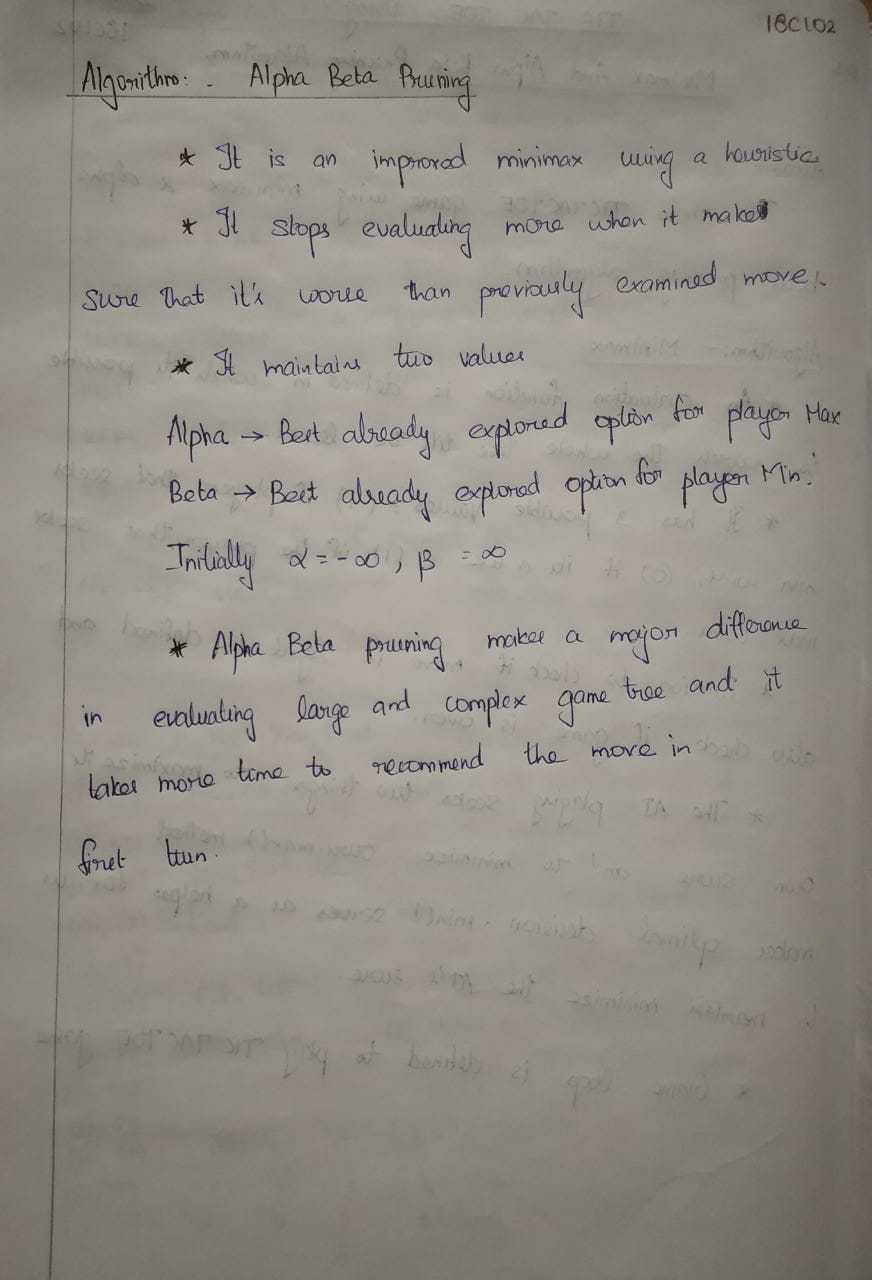 18C102
Algorithm: - Alpha Beta Pruning
* It is an improved minimax using a heuristic
* It stops evaluating more when it makes
sure that it's worse than previously examined move.
* It maintains two values
Alpha → Best already explored option for player Max
Beta → Best already explored option for player Min.
Initially α = -∞, β = ∞
* Alpha Beta pruning makes a major difference
in evaluating large and complex game tree and it
takes more time to recommend the move in
first turn.